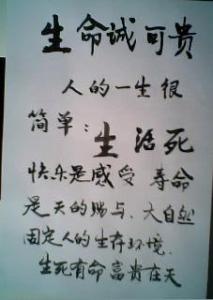 生命诚可贵
人的一生很
简单：生活死
快乐是感受 寿命
是天的赐与、大自然
固定人的生存环境、
生死有命富贵在天